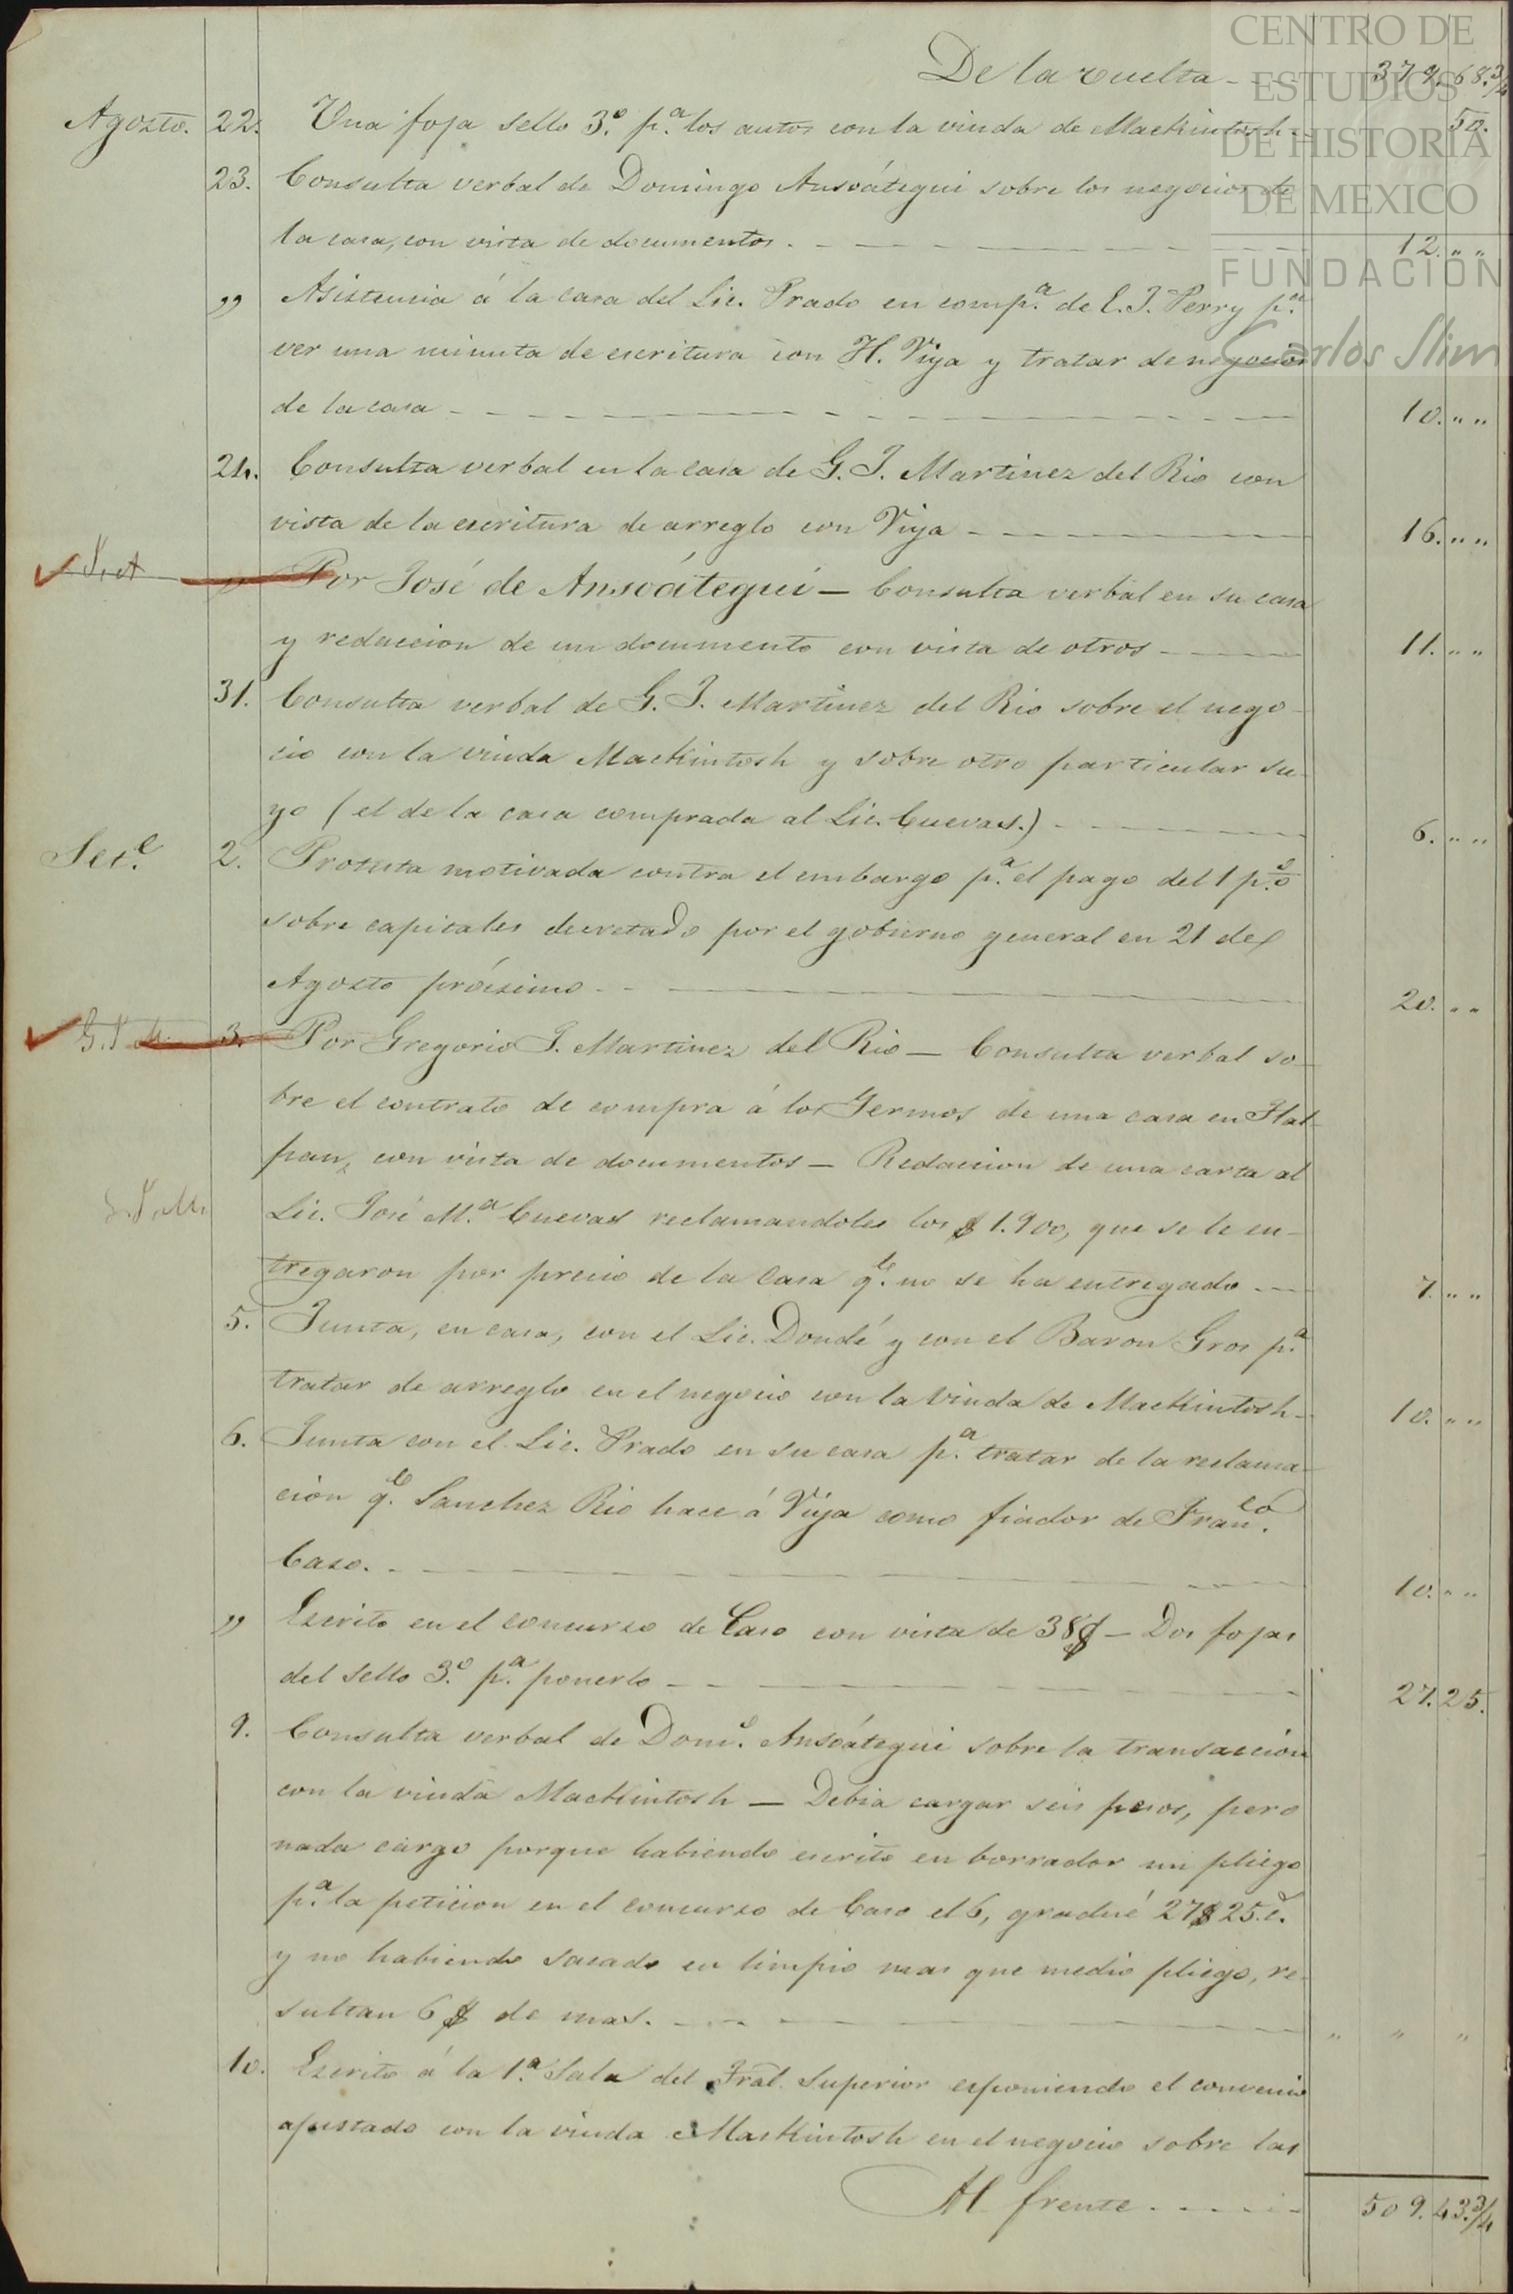 CENTRO DE
ESTUDIOS
DE HISTORIA
DE MEXICO
FUNDACIÓN
Carlos Slim
De la vuelta - 379. 68.3/4
Agosto. 22. Una foja sello 3.º p.ª los autos con la viuda de Mackintosh - 50.
23. Consulta verbal de Domingo Ansoátegui sobre los negocios de
la casa, con vista de documentos. - 12. " "
" Asistencia á la casa del Lic. Prado en comp.ª de E. J. Perry p.ª
ver una minuta de escritura con H. Viya y tratar de negocios
de la casa - 10. " "
24. Consulta verbal en la casa de G. J. Martinez del Rio con
vista de la escritura de arreglo con Viya - 16. " "
J. A " Por José de Ansoátegui - Consulta verbal en su casa
y redaccion de un documento con vista de otros - 11. " "
31. Consulta verbal de G. J. Martinez del Rio sobre el nego-
cio con la viuda Mackintosh y sobre otro particular su-
yo (el de la casa comprada al Lic. Cuevas.) - 6. " "
Set.e 2. Protesta motivada contra el embargo p.ª el pago del 1 p.%
sobre capitales decretado por el gobierno general en 21 de
Agosto próximo - 20. " "
G. J. M. 3. Por Gregorio J. Martinez del Rio - Consulta verbal so-
bre el contrato de compra á los Germos de una casa en Tlal-
pan, con vista de documentos - Redaccion de una carta al
G. J. M. Lic. José M.ª Cuevas reclamandoles los $ 1.900, que se le en-
tregaron por precio de la casa q.e no se ha entregado - 7. " "
5. Junta, en casa, con el Lic. Dondé y con el Baron Gros p.ª
tratar de arreglo en el negocio con la viuda de Mackintosh - 10. " "
6. Junta con el Lic. Prado en su casa p.ª tratar de la reclama-
cion q.e Sanchez Rio hace á Viya como fiador de Fran.co
Caso. - 10. " "
" Escrito en el concurso de Caso con vista de 38 f - Dos fojas
del sello 3.º p.ª ponerlo - 27. 25.
9. Consulta verbal de Dom.º Ansoátegui sobre la transaccion
con la viuda Mackintosh - Debia cargar seis pesos, pero
nada cargo porque habiendo escrito en borrador un pliego
p.ª la peticion en el concurso de Caso el 6, gradué 27 $ 25. c.s
y no habiendo sacado en limpio mas que medio pliego, re-
sultan 6 $ de mas. - " " "
10. Escrito á la 1.ª Sala del Tral. Superior esponiendo el convenio
ajustado con la viuda Mackintosh en el negocio sobre las
Al frente - 509. 43.3/4